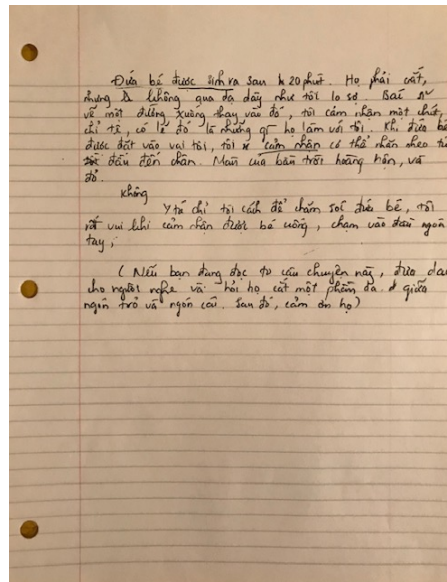 Đứa bé được sinh ra sau 20 phút. Họ phải cắt,
nhưng không qua dạ dày như tôi lo sợ. Bác sĩ
vẽ một đường xuống thay vào đó, tôi cảm nhận một chút,
chỉ tê, có lẽ đó là những gì họ làm với tôi. Khi đứa bé
được đặt vào vai tôi, tôi cảm nhận có thể nhăn nheo từ
đầu đến chân. Màu của bầu trời hoàng hôn, và
đỏ.
không
Y tá chỉ tôi cách để chăm sóc đứa bé, tôi
rất vui khi cảm nhận được bé uống, chạm vào đầu ngón
tay,
(Nếu bạn đang đọc to câu chuyện này, đưa dao
cho người nghe và hỏi họ cắt một phần da ở giữa
ngón trỏ và ngón cái. Sau đó, cảm ơn họ)